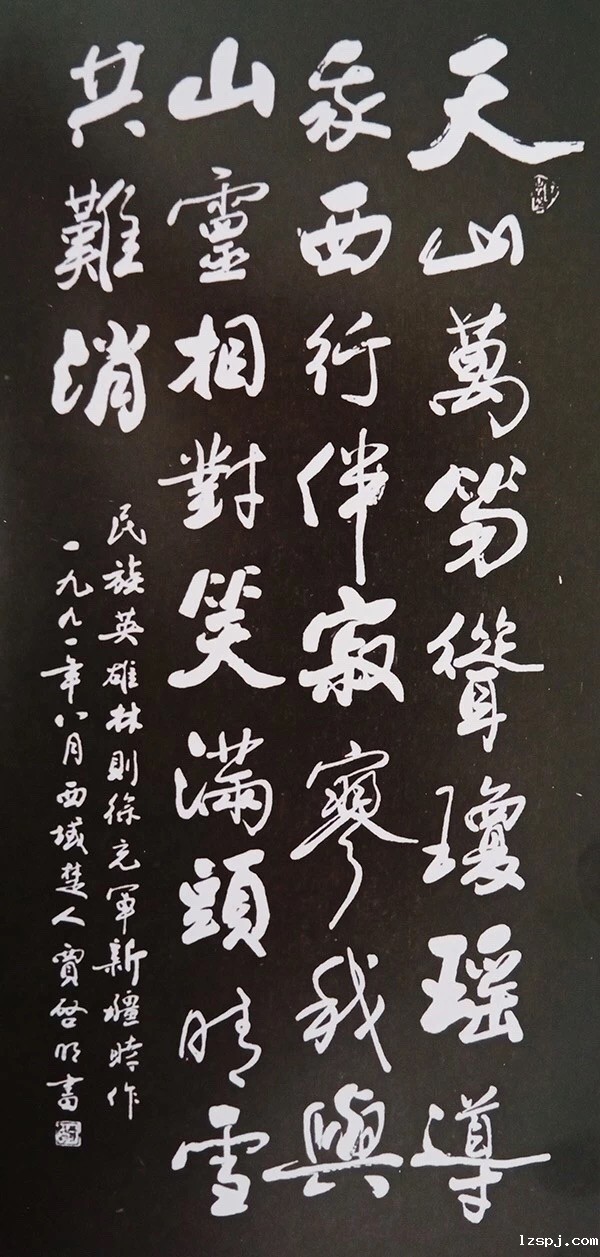 天山萬笏聳瓊瑤導
我西行伴寂寥我與
山靈相對笑滿頭晴雪
共難消
民族英雄林則徐充軍新疆時作
一九九一年八月西域楚人賈啓明書
lzspj.com